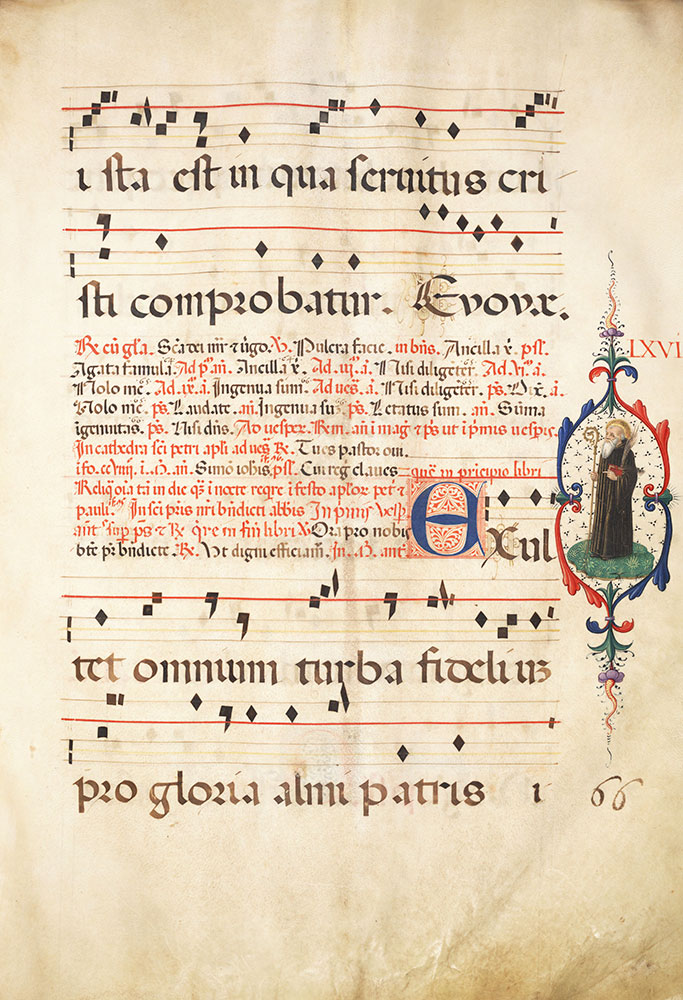 ista est in qua seruitus cri
sti comprobatur. Evovæ.
LXVI
R̃ cũ gl̃a. Scẽ dei mr̃ ⁊ ũgo. V. Pulcra facie. in bñs. Ancilla x̃. psl̃.
Agata famula. Ad pͫ. añ. Ancilla x̃. Ad. iij. ã. Nisi diligẽter. Ad. vj. ã.
Nolo mẽ. Ad. ix. ã. Ingenua sum. Ad ves̃. ã. Nisi diligẽter. ps̃. Dix̃. ã.
Nolo mẽ. ps̃. Laudate. añ. Ingenua sũ. ps̃. Letatus sum. añ. Sũma
igenuitas. ps̃. Nisi dñs. Ad vesper. Rm̃. añ. i mag̃ ⁊ ps̃ ut i primis uespis.
In cathedra sci petri apl̃i ad ues̃. R̃. Tu es pastor oui.
añ. Simõ iohis. psl̃. Cui reg̃ claues que in principio libri
Reliq̃ oia tã in die q̃ i nocte reqre i festo aplor̃ pet ⁊
pauli. In sci pris nr̃i bñdicti abbis In pmis vesp̃
añt sup̃ ps̃ ⁊ R̃ qr̃e in fiñ libri Ora pro nobis
btẽ pr̃ bñdicte. R̃. Ut digni efficiam̃. In. M. añt
EXul
tet omnium turba fidelium
pro gloria almi patris i
66